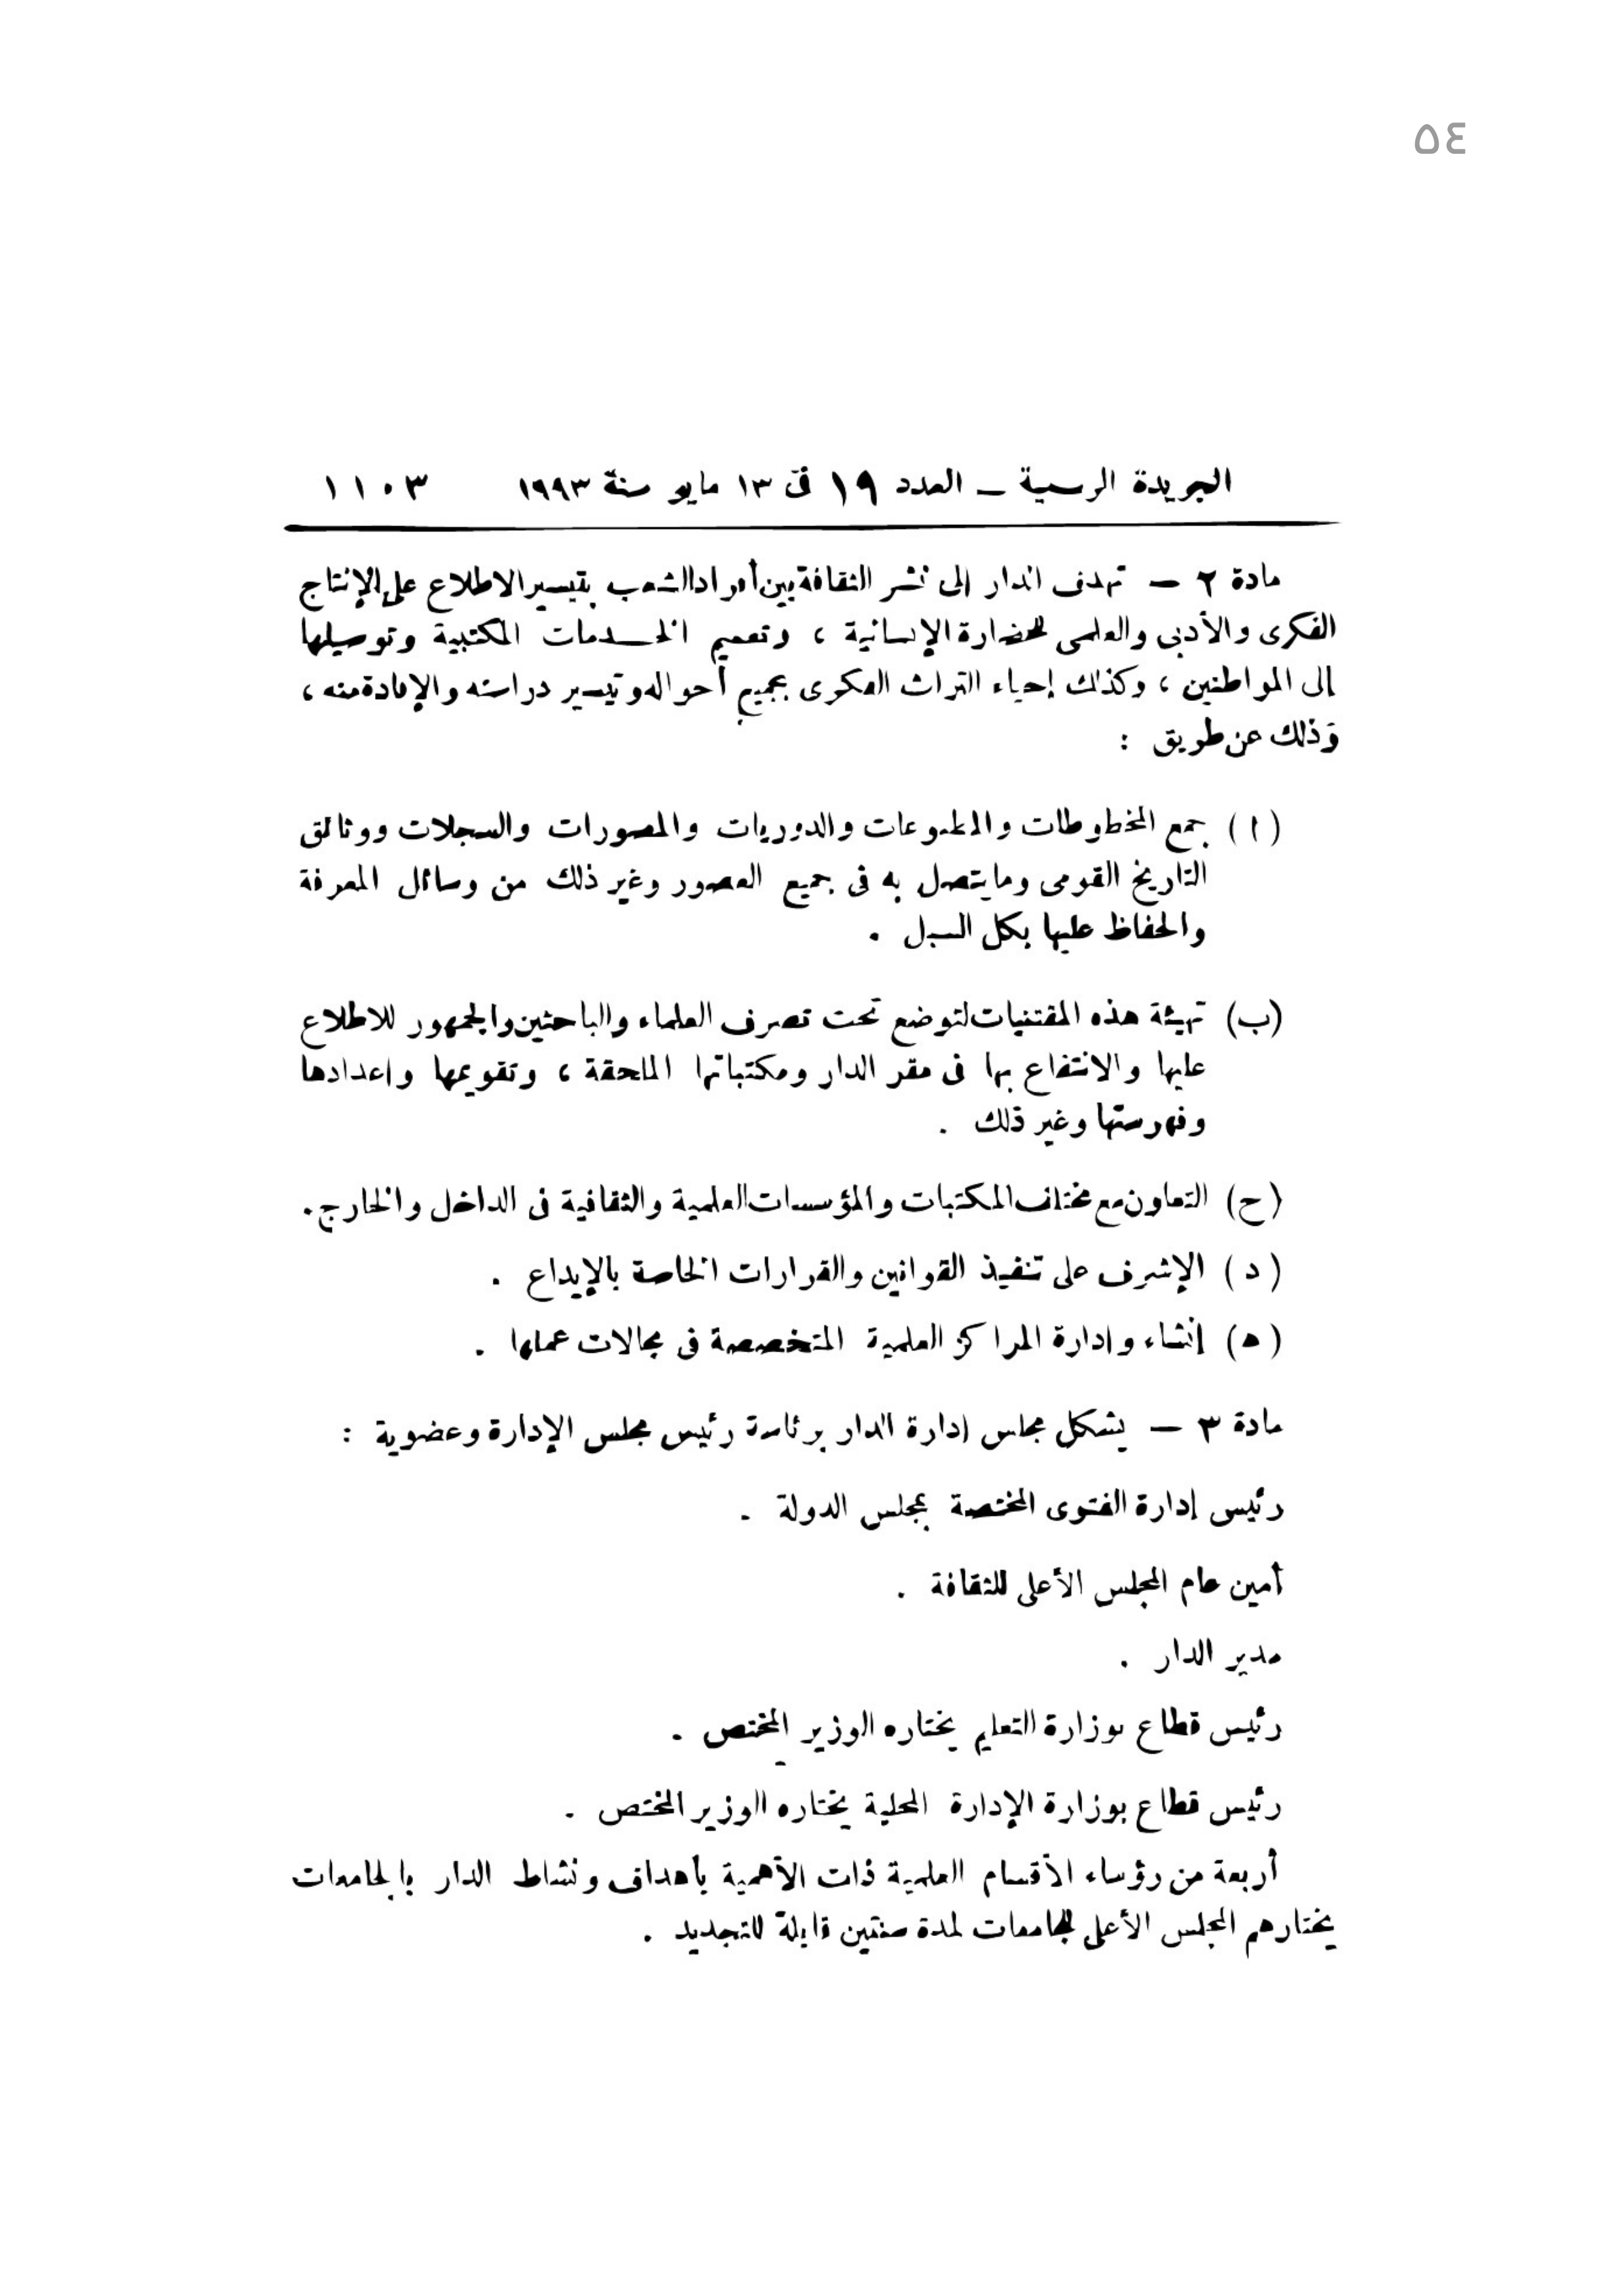 ٥٤
الجريدة الرسمية – العدد ١٩ فى ١٣ مايو سنة ١٩٩٣ ١١٠٣
مادة ٢ – تهدف الدار إلى نشر الثقافة بين أفراد الشعب بتيسير الاطلاع على الإنتاج
الفكرى والأدبى والعلمى للحضارة الإنسانية ، وتعميم الخدمات المكتبية وتوصيلها
إلى المواطنين ، وكذلك إحياء التراث الفكرى بجميع أحواله وتيسير دراسته والإفادة منه ،
وذلك عن طريق :
( ا ) جمع المخطوطات والمطبوعات والدوريات والمصورات والسجلات ووثائق
التاريخ القومى وما يتصل به فى جميع العصور وغير ذلك من وسائل المعرفة
والحفاظ عليها بكل السبل .
(ب) تهيئة هذه المقتنيات لتوضع تحت تصرف العلماء والباحثين والجمهور للاطلاع
عليها والانتفاع بها فى مقر الدار ومكتباتها الملحقة ، وتقويمها وإعدادها
وفهرستها وغير ذلك .
(ح) التعاون مع مختلف المكتبات والمؤسسات العلمية والثقافية فى الداخل والخارج .
( د ) الإشرف على تنفيذ القوانين والقرارات الخاصة بالإيداع .
( ه ) إنشاء وإدارة المراكز العلمية المتخصصة فى مجالات عملها .
مادة ٣ – يشكل مجلس إدارة الدار برئاسة رئيس مجلس الإدارة وعضوية :
رئيس إدارة الفتوى المختصة بمجلس الدولة .
أمين عام المجلس الأعلى للثقافة .
مدير الدار .
رئيس قطاع بوزارة التعليم يختاره الوزير المختص .
رئيس قطاع بوزارة الإدارة المحلية يختاره الوزير المختص .
أربعة من رؤساء الأقسام العلمية ذات الأهمية بأهداف ونشاط الدار بالجامعات
يختارهم المجلس الأعلى للجامعات لمدة سنتين قابلة للتجديد .